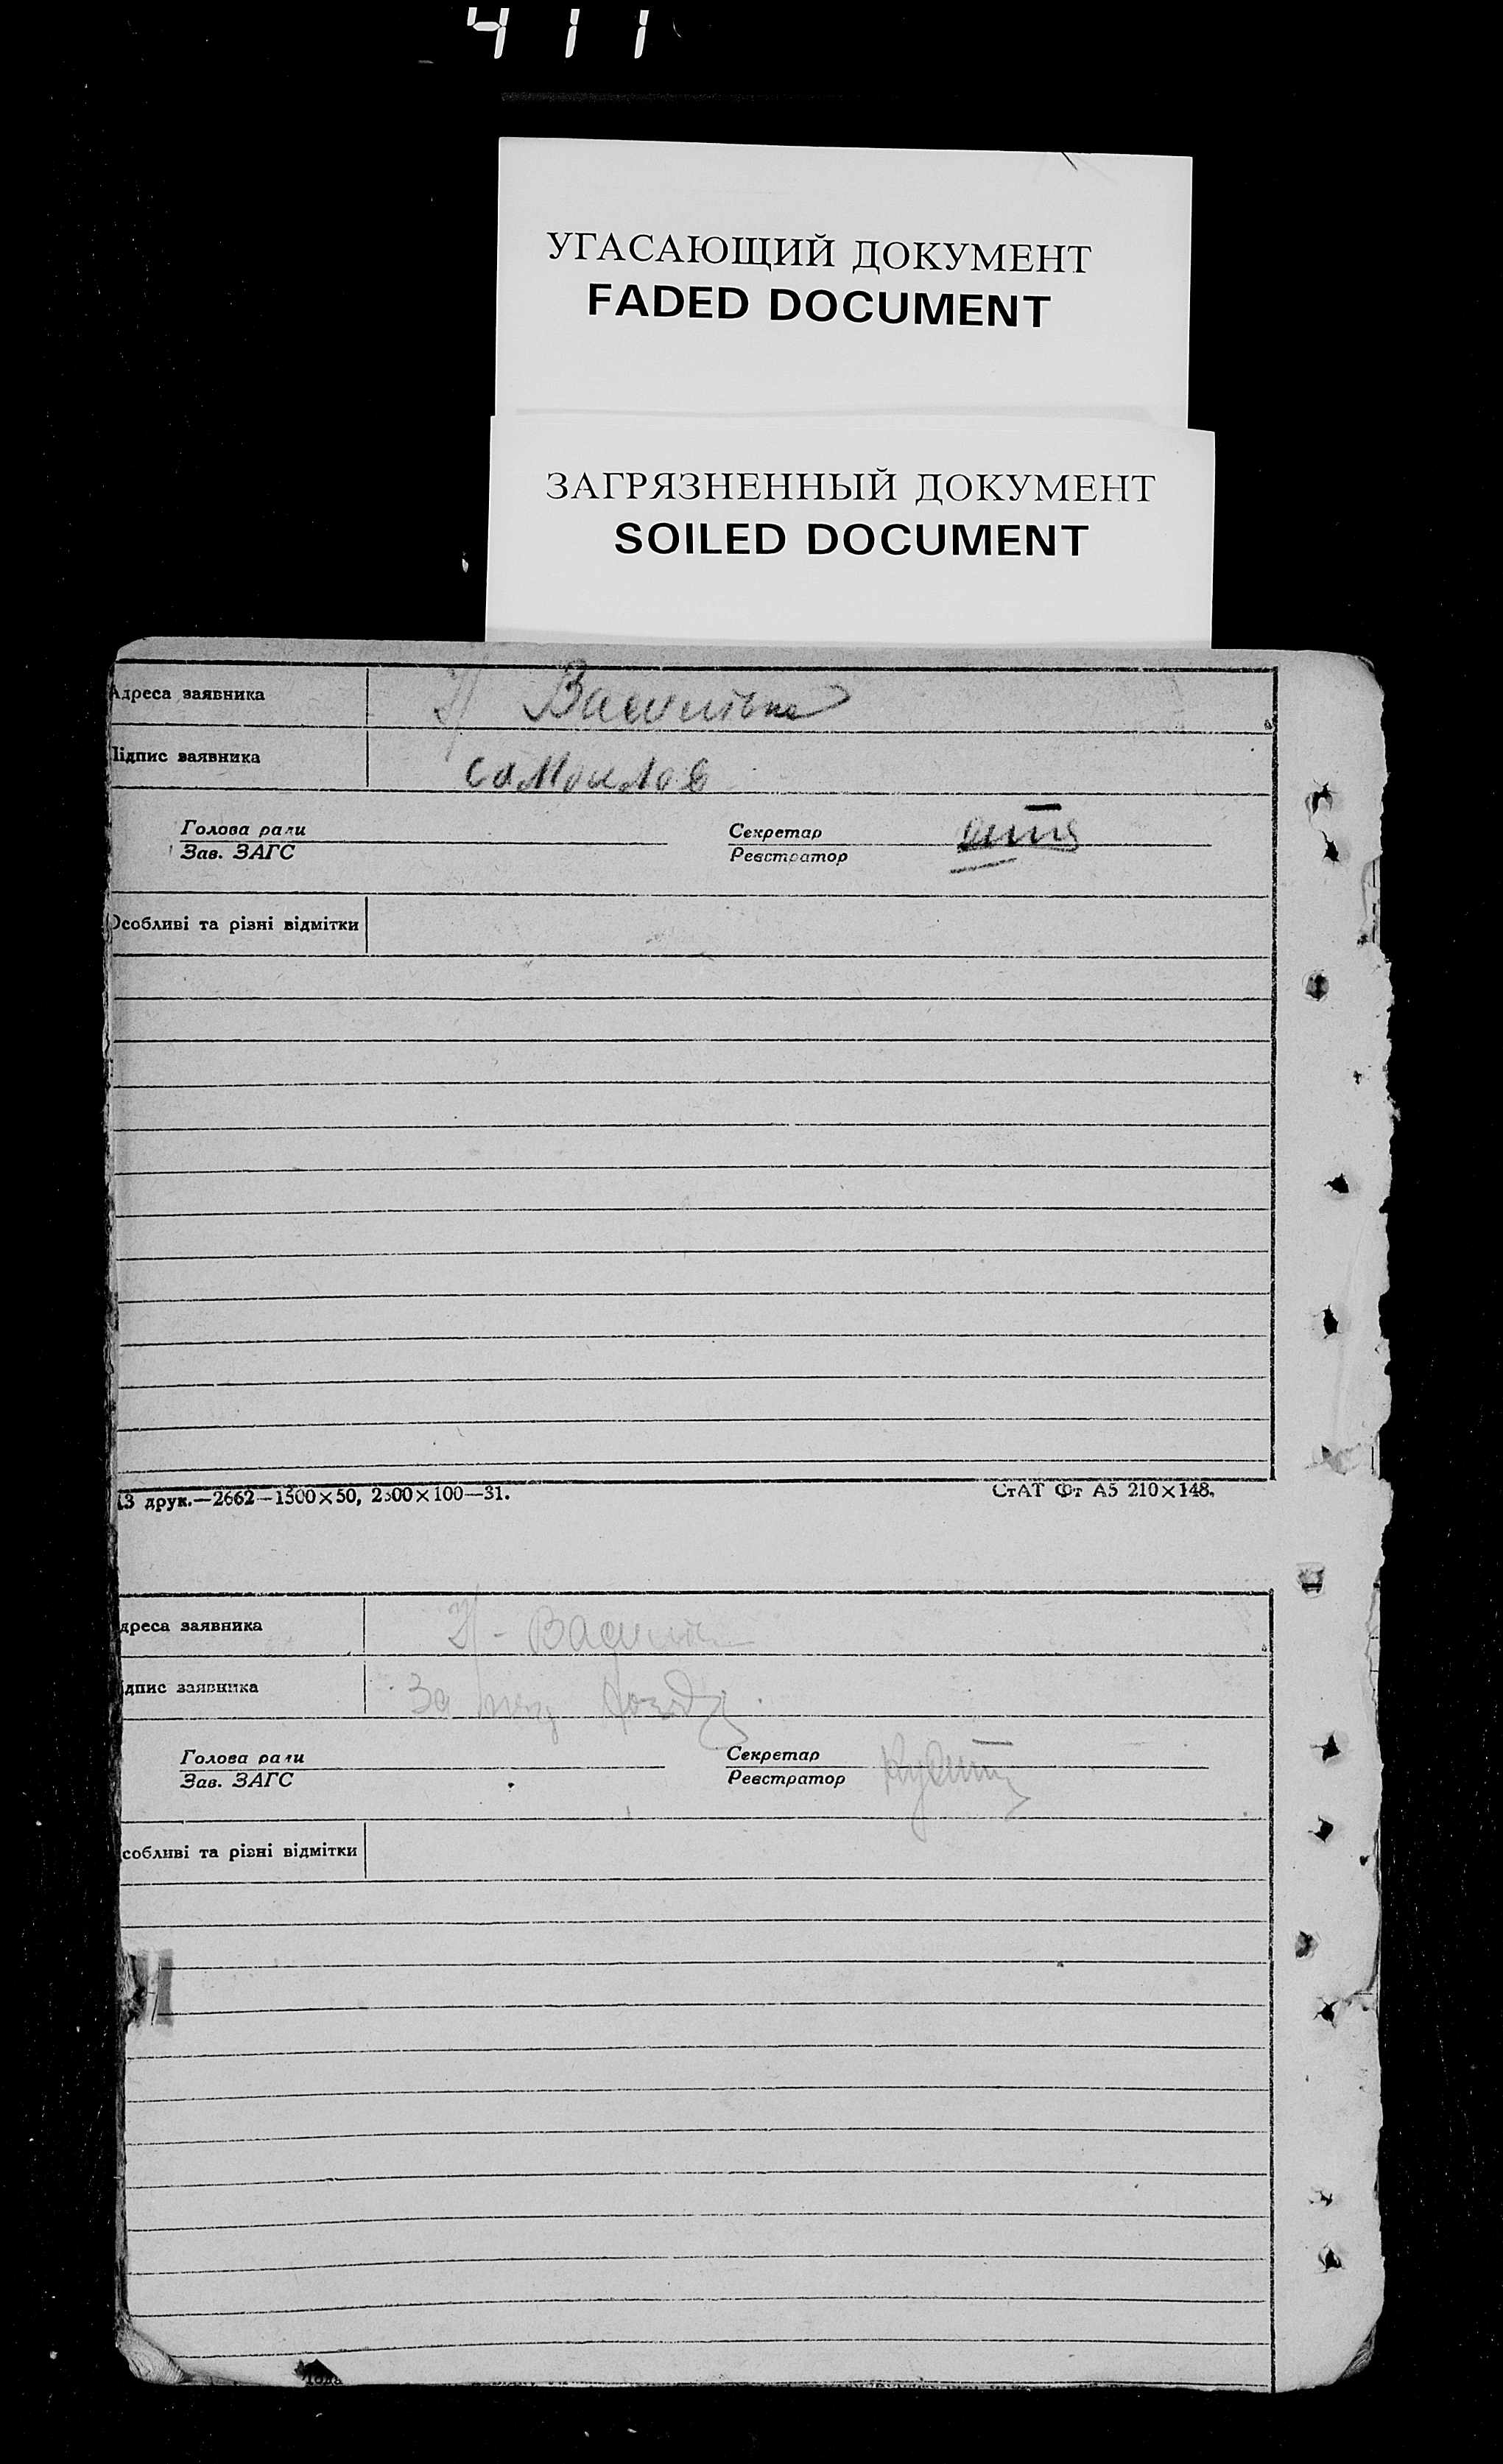 411
УГАСАЮЩИЙ ДОКУМЕНТ
FADED DOCUMENT
ЗАГРЯЗНЕННЫЙ ДОКУМЕНТ
SOILED DOCUMENT
Адреса заявника Василівка
Підпис заявника Самойлов
Голова ради Секретар
Зав. ЗАГС Реєстратор
Особливі та різні відмітки
друк.—2662—1500×50, 2500×100—31. СтАТ Фт А5 210×148.
дреса заявника
дпис заявника За
Голова ради Секретар
Зав. ЗАГС Реєстратор
собливі та різні відмітки